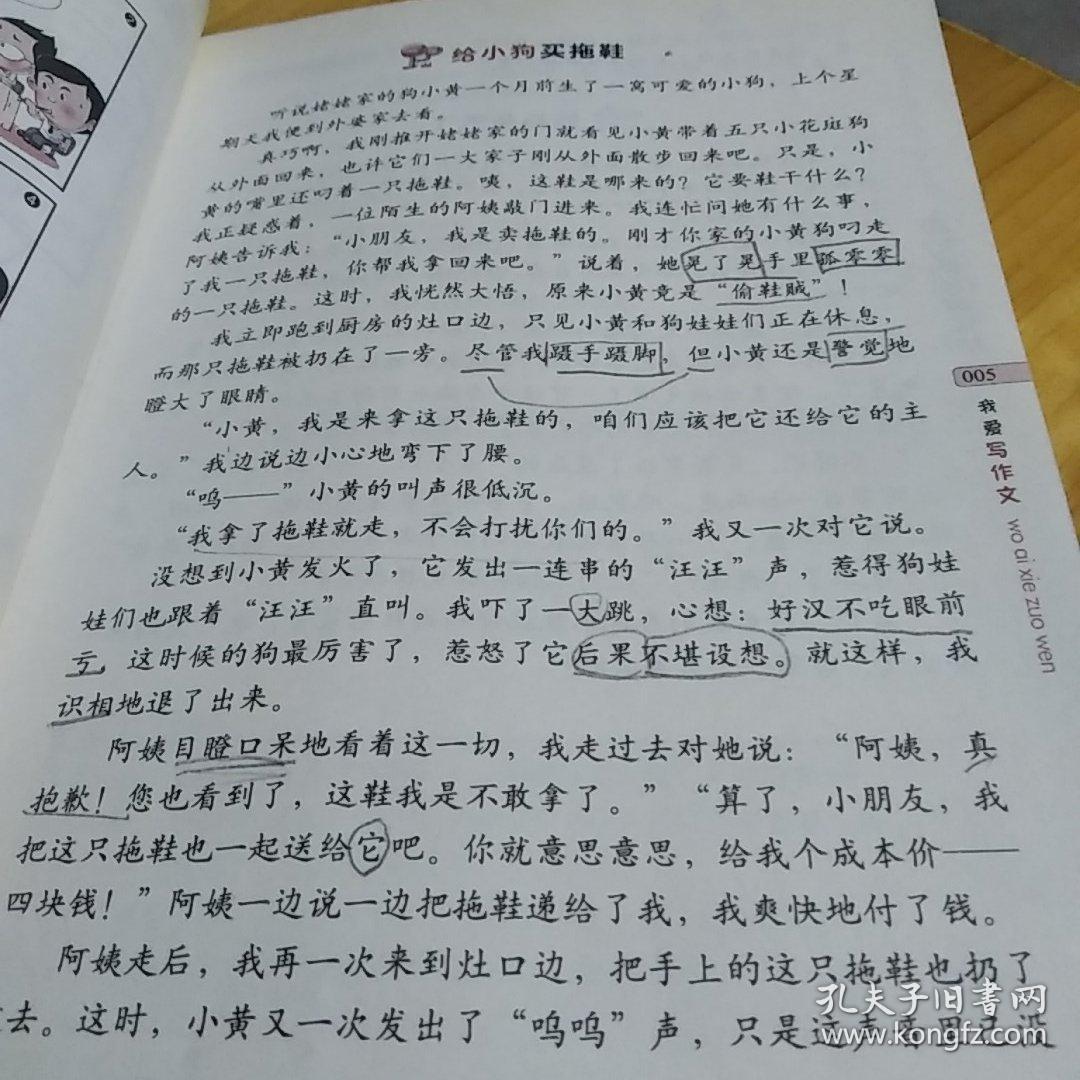 给小狗买拖鞋
听说姥姥家的狗小黄一个月前生了一窝可爱的小狗，上个星
期天我便到外婆家去看。
真巧啊，我刚推开姥姥家的门就看见小黄带着五只小花斑狗
从外面回来，也许它们一大家子刚从外面散步回来吧。只是，小
黄的嘴里还叼着一只拖鞋。咦，这鞋是哪来的？它要鞋干什么？
我正疑惑着，一位陌生的阿姨敲门进来。我连忙问她有什么事，
阿姨告诉我：“小朋友，我是卖拖鞋的。刚才你家的小黄狗叼走
了我一只拖鞋，你帮我拿回来吧。”说着，她晃了晃手里孤零零
的一只拖鞋。这时，我恍然大悟，原来小黄竟是“偷鞋贼”！
我立即跑到厨房的灶口边，只见小黄和狗娃娃们正在休息，
而那只拖鞋被扔在了一旁。尽管我蹑手蹑脚，但小黄还是警觉地
瞪大了眼睛。
“小黄，我是来拿这只拖鞋的，咱们应该把它还给它的主
人。”我边说边小心地弯下了腰。
“呜——”小黄的叫声很低沉。
“我拿了拖鞋就走，不会打扰你们的。”我又一次对它说。
没想到小黄发火了，它发出一连串的“汪汪”声，惹得狗娃
娃们也跟着“汪汪”直叫。我吓了一大跳，心想：好汉不吃眼前
亏，这时候的狗最厉害了，惹怒了它后果不堪设想。就这样，我
识相地退了出来。
阿姨目瞪口呆地看着这一切，我走过去对她说：“阿姨，真
抱歉！您也看到了，这鞋我是不敢拿了。”“算了，小朋友，我
把这只拖鞋也一起送给它吧。你就意思意思，给我个成本价——
四块钱！”阿姨一边说一边把拖鞋递给了我，我爽快地付了钱。
阿姨走后，我再一次来到灶口边，把手上的这只拖鞋也扔了
去。这时，小黄又一次发出了“呜呜”声，只是这声
005
我爱写作文
wo ai xie zuo wen
3
4
孔夫子旧书网
www.kongfz.com